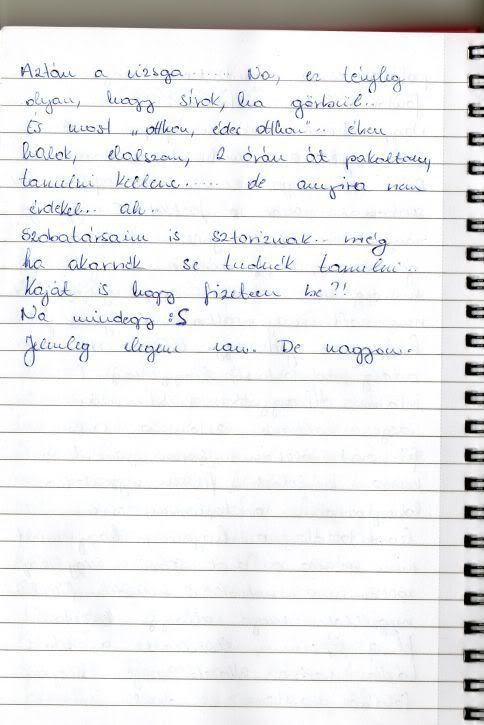 Aztán a vizsga...... Na, ez tényleg
olyan, hogy sírok, ha görbül..
És most „otthon, édes otthon".. éhen
halok, elalszom, 2 órán át pakoltam,
tanulni kellene...... de annyira nem
érdekel.. ah..
Szobatársaim is sztoriznak.. még
ha akarnék se tudnék tanulni..
Kaját is hogy fizettem be?!
Na mindegy :S
Jelenleg elegem van. De nagyon.